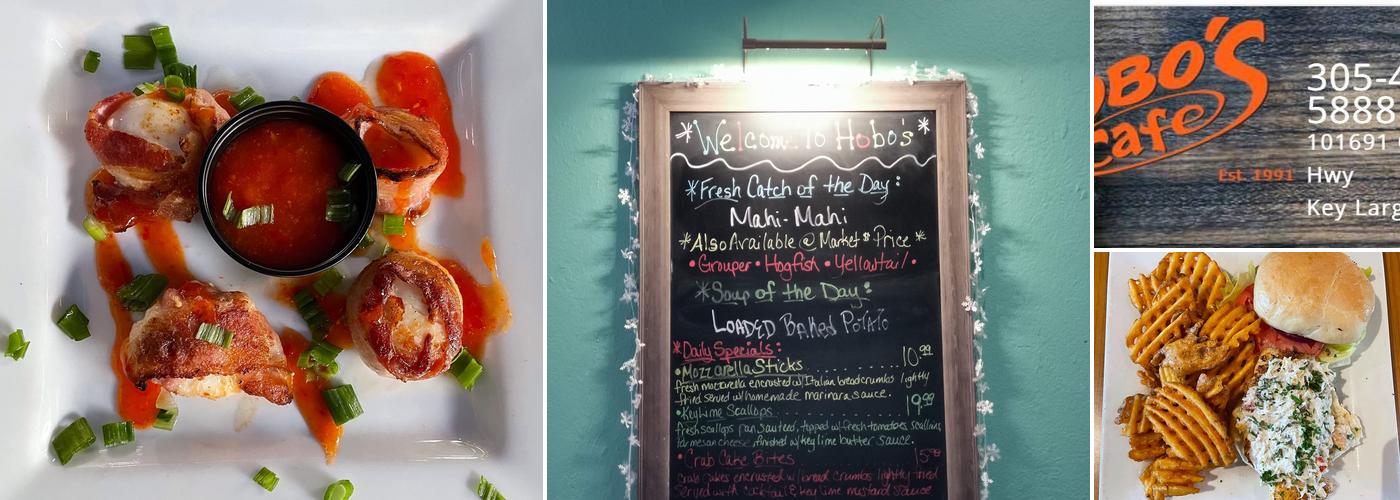 *Welcom To Hobo's*
*Fresh Catch of the Day:
Mahi-Mahi
*Also Available @ Market $ Price *
• Grouper • Hogfish • Yellowtail •
*Soup of the Day:
LOADED BAKED POTATO
*Daily Specials:
• Mozzarella Sticks 10.99
fresh mozzarella encrusted w/ Italian breadcrumbs lightly
fried served w/ homemade marinara sauce.
• Key Lime Scallops 19.99
fresh scallops pan sauteed, topped w/ fresh tomatoes, scallions,
parmesan cheese, finished w/ key lime butter sauce.
• Crab Cake Bites 15.99
crab cakes encrusted w/ bread crumbs lightly fried
served with cocktail & key lime mustard sauce
OBO'S
Cafe
Est. 1991
305-4
5888
101691
Hwy
Key Larg